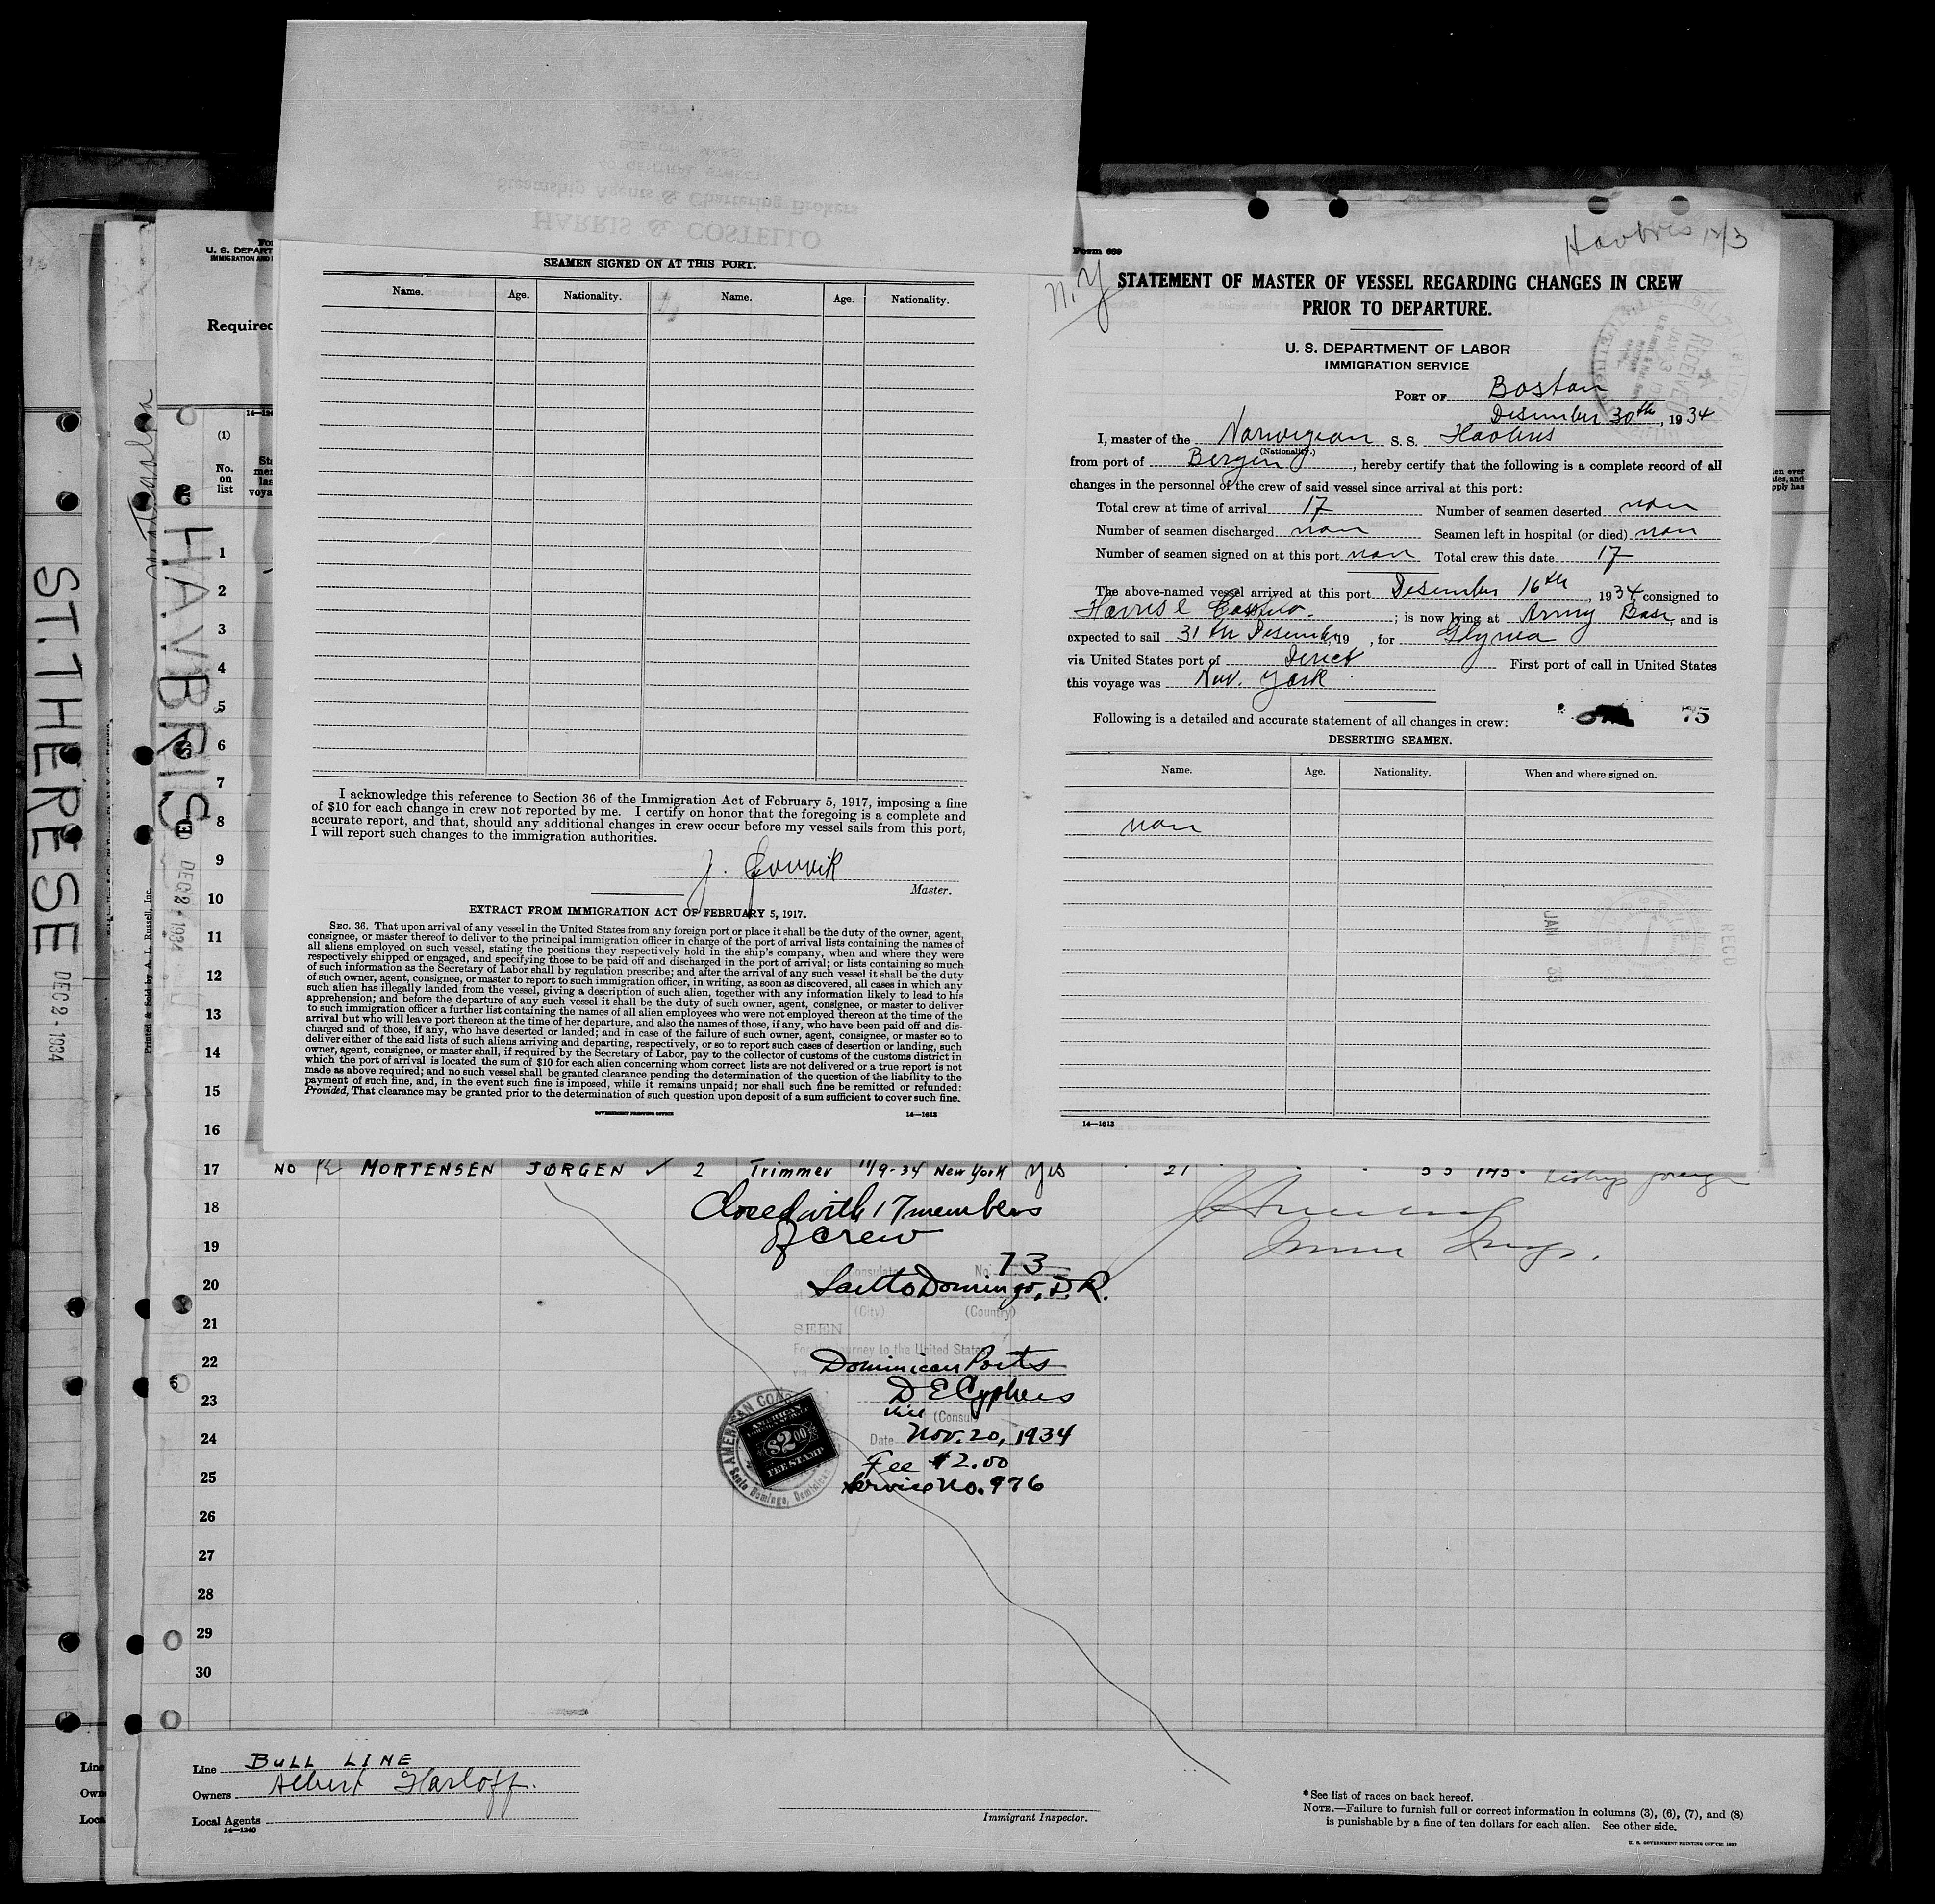 HARRIS & COSTELLO
Steamship Agents & Chartering Brokers
CENTRAL STREET
BOSTON MASS
SEAMEN SIGNED ON AT THIS PORT.
Name. Age. Nationality. Name. Age. Nationality.
I acknowledge this reference to Section 36 of the Immigration Act of February 5, 1917, imposing a fine
of $10 for each change in crew not reported by me. I certify on honor that the foregoing is a complete and
accurate report, and that, should any additional changes in crew occur before my vessel sails from this port,
I will report such changes to the immigration authorities.
Master.
EXTRACT FROM IMMIGRATION ACT OF FEBRUARY 5, 1917.
SEC. 36. That upon arrival of any vessel in the United States from any foreign port or place it shall be the duty of the owner, agent,
consignee, or master thereof to deliver to the principal immigration officer in charge of the port of arrival lists containing the names of
all aliens employed on such vessel, stating the positions they respectively hold in the ship's company, when and where they were
respectively shipped or engaged, and specifying those to be paid off and discharged in the port of arrival; or lists containing so much
of such information as the Secretary of Labor shall by regulation prescribe; and after the arrival of any such vessel it shall be the duty
of such owner, agent, consignee, or master to report to such immigration officer, in writing, as soon as discovered, all cases in which any
such alien has illegally landed from the vessel, giving a description of such alien, together with any information likely to lead to his
apprehension; and before the departure of any such vessel it shall be the duty of such owner, agent, consignee, or master to deliver
to such immigration officer a further list containing the names of all alien employees who were not employed thereon at the time of the
arrival but who will leave port thereon at the time of her departure, and also the names of those, if any, who have been paid off and dis-
charged and of those, if any, who have deserted or landed; and in case of the failure of such owner, agent, consignee, or master so to
deliver either of the said lists of such aliens arriving and departing, respectively, or so to report such cases of desertion or landing, such
owner, agent, consignee, or master shall, if required by the Secretary of Labor, pay to the collector of customs of the customs district in
which the port of arrival is located the sum of $10 for each alien concerning whom correct lists are not delivered or a true report is not
made as above required; and no such vessel shall be granted clearance pending the determination of the question of the liability to the
payment of such fine, and, in the event such fine is imposed, while it remains unpaid; nor shall such fine be remitted or refunded:
Provided, That clearance may be granted prior to the determination of such question upon deposit of a sum sufficient to cover such fine.
GOVERNMENT PRINTING OFFICE 14—1613
Havbris 12/3
Form 689
N.Y
STATEMENT OF MASTER OF VESSEL REGARDING CHANGES IN CREW
PRIOR TO DEPARTURE.
U. S. DEPARTMENT OF LABOR
IMMIGRATION SERVICE
RECEIVED
PORT OF Boston
Desember 30th, 1934
I, master of the Norwegian S. S. Havbris
(Nationality.)
from port of Bergen, hereby certify that the following is a complete record of all
changes in the personnel of the crew of said vessel since arrival at this port:
Total crew at time of arrival 17 Number of seamen deserted non
Number of seamen discharged non Seamen left in hospital (or died) non
Number of seamen signed on at this port non Total crew this date 17
The above-named vessel arrived at this port Desember 16th, 1934, consigned to
Harris & Costello.; is now lying at Army Base, and is
expected to sail 31th Desember, 19 , for
via United States port of Direct First port of call in United States
this voyage was New. York
Following is a detailed and accurate statement of all changes in crew: 75
DESERTING SEAMEN.
Name. Age. Nationality. When and where signed on.
non
JAN 35
REC'D
14—1613
ST. THERESE
DEC 2 - 1934
Printed & Sold by A. L. Russell, Inc.
HAVBRIS
DEC 2 - 1934
U. S. DEPART
IMMIGRATION AND
Required
14—124
(1)
No. on list
1
2
3
4
5
6
7
8
9
10
11
12
13
14
15
16
17 NO MORTENSEN JØRGEN ✓ 2 Trimmer 11/9-34 New York Yes 21 5 5 145
18 Closed with 17 members
of crew
19
No. 73
20 Santo Domingo, D.R.
(City) (Country)
21 SEEN
For journey to the United States
22 Dominican Ports
23 D E Cyphers
Vice (Consul
24 Date Nov. 20, 1934
Fee $2.00
25 Service No. 976
AMERICAN
$2.00
FEE STAMP
AMERICAN CONS
Santo Domingo, Dominican
26
27
28
29
30
Line BULL LINE
Owners Albert Harloff.
Local Agents
14—1240
Immigrant Inspector.
*See list of races on back hereof.
NOTE.—Failure to furnish full or correct information in columns (3), (6), (7), and (8)
is punishable by a fine of ten dollars for each alien. See other side.
Line
Own
Loca